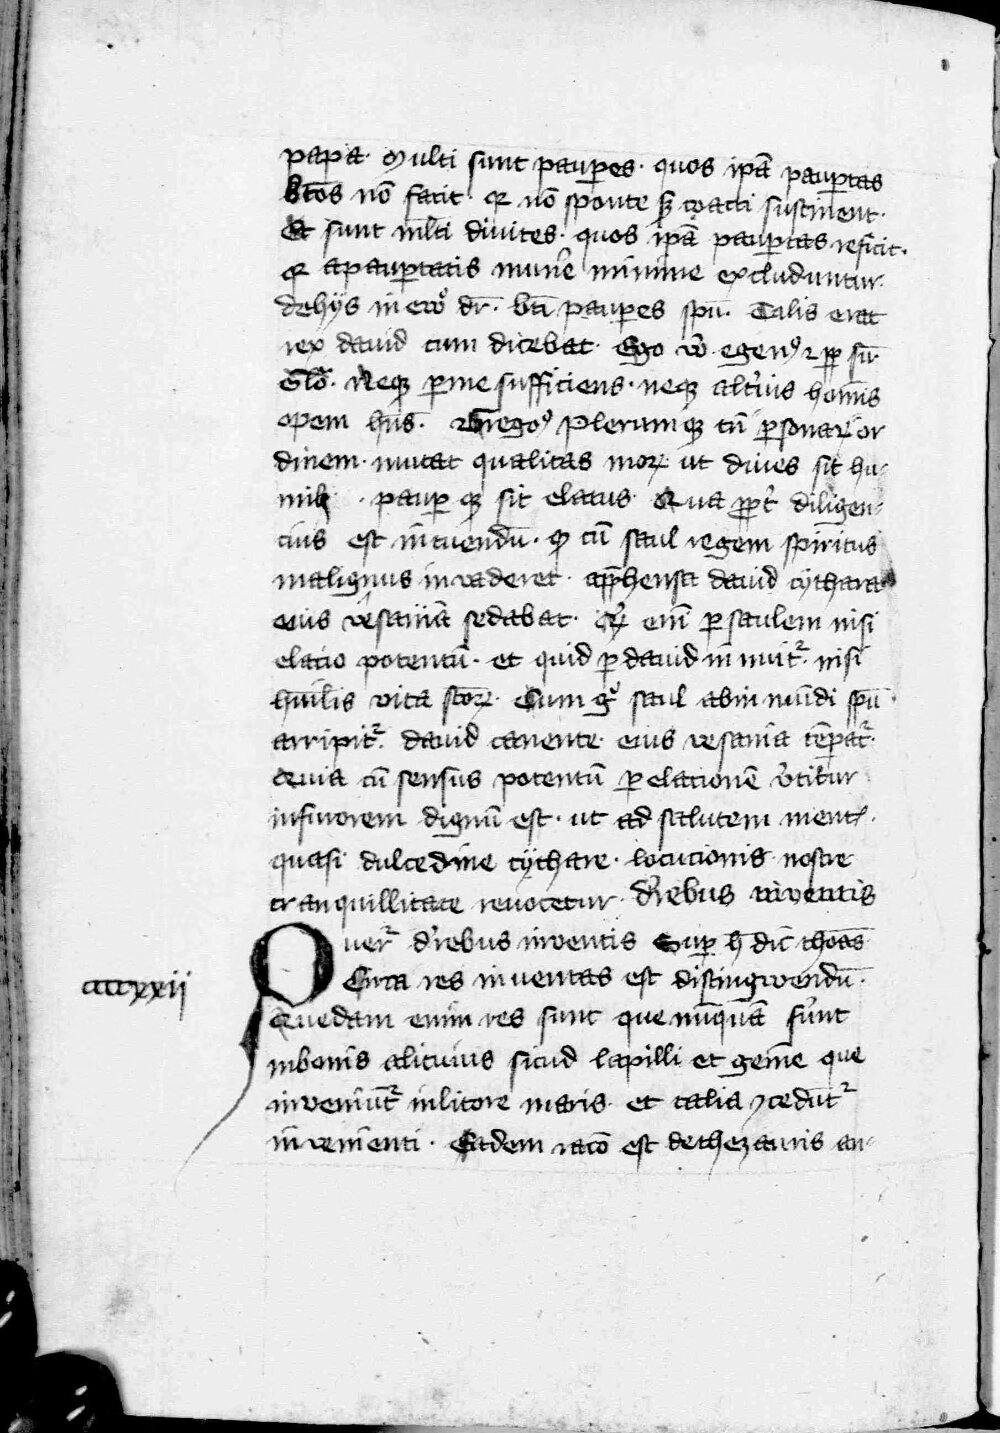 papa· Multi sunt paup̲es· quos ip̄a paup̲tas
btōs nō facit· q̄ nō sponte sꝫ coacti sustinent·
Et sunt ml̄ti diuites· quos ip̄a paup̲tas reficit·
q̄ apaup̲tatis mune̅ minime excluduntur·
dehijs in ewᵒ dr̄· bt̄i paup̲es spū· Talis erat
rex dauid cum dicebat· Ego v̄o egenꝰ ⁊ pp̲ sū·
Glō· Neqꝫ p̲me sufficiens· neqꝫ alt̓ius hom̄is
opem hn̄s· Gregoꝰ Plerumqꝫ tn̄ p̲sonaꝝ or
dinem· mutat qualitas moꝝ ut diues sit hu-
mil̕ · paup̲ qꝫ sit elatus· Qua ꝓpt̓ diligen-
cius est intuendū· ꝙ cū saul regem spiritus
malignus inuaderet· app̲hensa dauid cythara
eius vesaniā sedabat· q̄ eni̅ p̲ saulem nisi
elacio potentū· et quid p̲ dauid innuit᷑· nisi
humilis vita sc̄oꝝ· Cum gͦ saul abinmundi spū
arripit᷑· dauid canente· eius vesania temp̲at᷑·
Quia cū sensus potentū p̲ elacionē v̓titur
infurorem dignū est· ut ad salutem mentꝭ·
quasi dulcedine cythare· locucionis nostre
tranquillitate reuocetur· D̓ rebus inuentis
Quer᷑ d̓ rebus inventis Sup̲ h̄ dic̄ thoās
ccccxxii
Circa res inuentas est distingwendū·
Quedam enim res sunt que nūquā fūnt
inbonis alicuius sicud lapilli et gem̄e que
inveniūt᷑ inlitore maris· et talia ꝯcedūt᷑
invenienti· Eadem racō est dethezauris an-